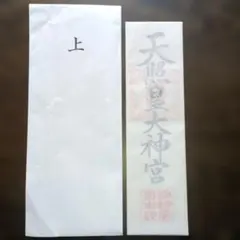 上
天照皇大神宮